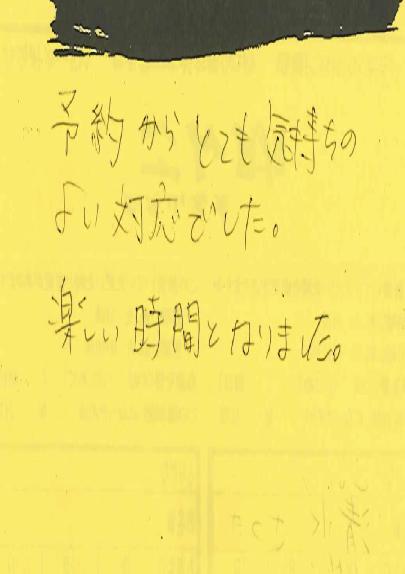 予約からとても気持ちの
よい対応でした。
楽しい時間となりました。